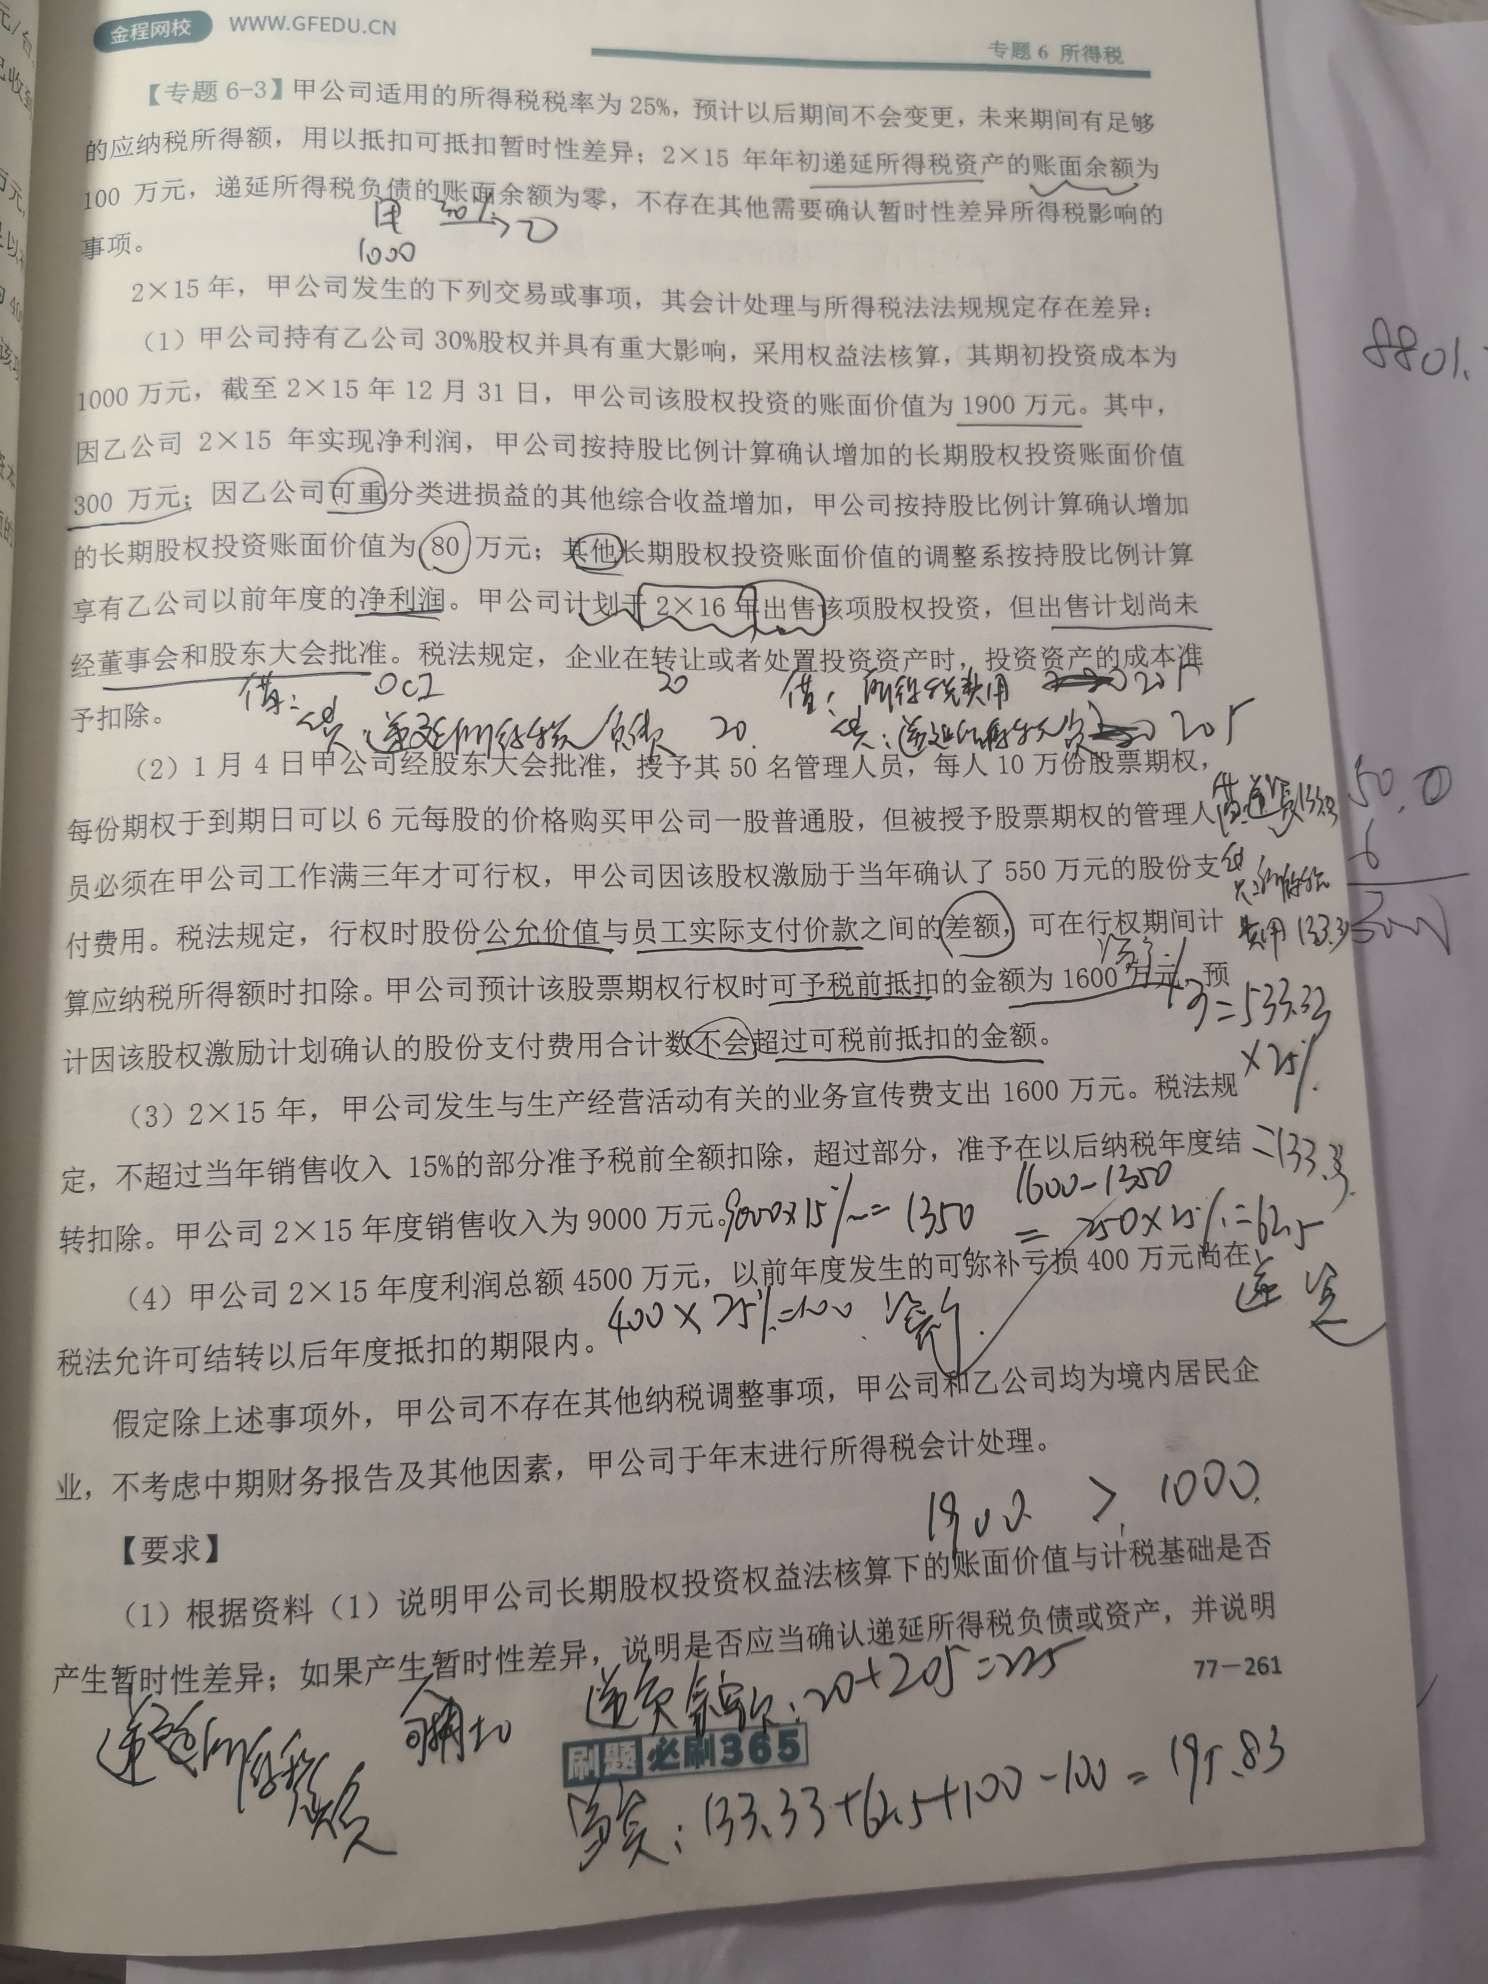 金程网校 WWW.GFEDU.CN
专题 6 所得税
【专题 6-3】甲公司适用的所得税税率为 25%，预计以后期间不会变更，未来期间有足够
的应纳税所得额，用以抵扣可抵扣暂时性差异；2×15 年年初递延所得税资产的账面余额为
100 万元，递延所得税负债的账面余额为零，不存在其他需要确认暂时性差异所得税影响的
甲 30%
事项。
1000
2×15 年，甲公司发生的下列交易或事项，其会计处理与所得税法法规规定存在差异：
（1）甲公司持有乙公司 30%股权并具有重大影响，采用权益法核算，其期初投资成本为
1000 万元，截至 2×15 年 12 月 31 日，甲公司该股权投资的账面价值为 1900 万元。其中，
因乙公司 2×15 年实现净利润，甲公司按持股比例计算确认增加的长期股权投资账面价值
300 万元；因乙公司可重分类进损益的其他综合收益增加，甲公司按持股比例计算确认增加
的长期股权投资账面价值为 80 万元；其他长期股权投资账面价值的调整系按持股比例计算
享有乙公司以前年度的净利润。甲公司计划于 2×16 年出售该项股权投资，但出售计划尚未
经董事会和股东大会批准。税法规定，企业在转让或者处置投资资产时，投资资产的成本准
予扣除。
借： OCI 20 借：所得税费用 205
贷：递延所得税负债 20 贷：递延所得税负债 205
（2）1 月 4 日甲公司经股东大会批准，授予其 50 名管理人员，每人 10 万份股票期权，
每份期权于到期日可以 6 元每股的价格购买甲公司一股普通股，但被授予股票期权的管理人
借：递资 133.33
员必须在甲公司工作满三年才可行权，甲公司因该股权激励于当年确认了 550 万元的股份支
贷：所得税
付费用。税法规定，行权时股份公允价值与员工实际支付价款之间的差额，可在行权期间计
费用 133.33
算应纳税所得额时扣除。甲公司预计该股票期权行权时可予税前抵扣的金额为 1600 万元，预
÷3=533.33
计因该股权激励计划确认的股份支付费用合计数不会超过可税前抵扣的金额。
×25%
（3）2×15 年，甲公司发生与生产经营活动有关的业务宣传费支出 1600 万元。税法规
定，不超过当年销售收入 15%的部分准予税前全额扣除，超过部分，准予在以后纳税年度结
=133.33
转扣除。甲公司 2×15 年度销售收入为 9000 万元。
9000×15%=1350 1600-1350
=250×25%=62.5
（4）甲公司 2×15 年度利润总额 4500 万元，以前年度发生的可弥补亏损 400 万元尚在
递资
税法允许可结转以后年度抵扣的期限内。
400×25%=100
假定除上述事项外，甲公司不存在其他纳税调整事项，甲公司和乙公司均为境内居民企
业，不考虑中期财务报告及其他因素，甲公司于年末进行所得税会计处理。
1900 > 1000
【要求】
（1）根据资料（1）说明甲公司长期股权投资权益法核算下的账面价值与计税基础是否
产生暂时性差异；如果产生暂时性差异，说明是否应当确认递延所得税负债或资产，并说明
77－261
递负余额：20+205=225
刷题必刷365
133.33+62.5+100-100=195.83